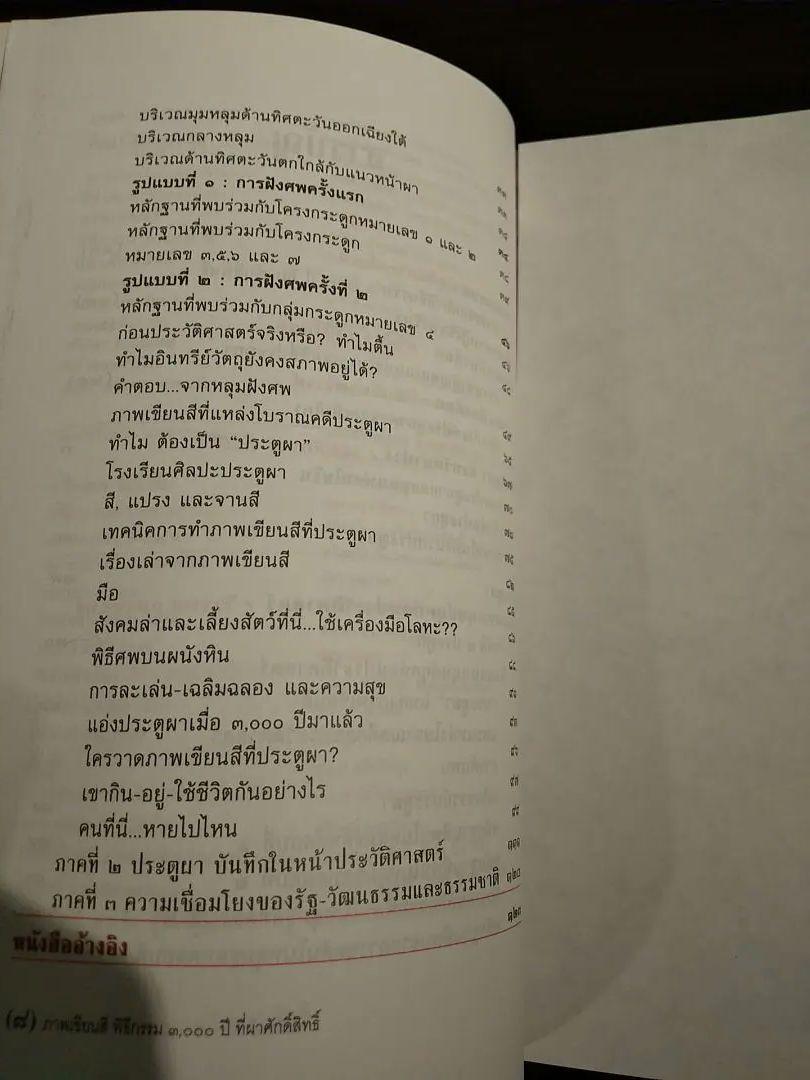 บริเวณมุมหลุมด้านทิศตะวันออกเฉียงใต้
บริเวณกลางหลุม
บริเวณด้านทิศตะวันตกใกล้กับแนวหน้าผา
รูปแบบที่ ๑ : การฝังศพครั้งแรก
หลักฐานที่พบร่วมกับโครงกระดูกหมายเลข ๑ และ ๒
หลักฐานที่พบร่วมกับโครงกระดูก
หมายเลข ๓,๕,๖ และ ๗
รูปแบบที่ ๒ : การฝังศพครั้งที่ ๒
หลักฐานที่พบร่วมกับกลุ่มกระดูกหมายเลข ๔
ก่อนประวัติศาสตร์จริงหรือ? ทำไมตื้น
ทำไมอินทรีย์วัตถุยังคงสภาพอยู่ได้?
คำตอบ...จากหลุมฝังศพ
ภาพเขียนสีที่แหล่งโบราณคดีประตูผา
ทำไม ต้องเป็น “ประตูผา”
โรงเรียนศิลปะประตูผา
สี, แปรง และจานสี
เทคนิคการทำภาพเขียนสีที่ประตูผา
เรื่องเล่าจากภาพเขียนสี
มือ
สังคมล่าและเลี้ยงสัตว์ที่นี่...ใช้เครื่องมือโลหะ??
พิธีศพบนผนังหิน
การละเล่น-เฉลิมฉลอง และความสุข
แอ่งประตูผาเมื่อ ๓,๐๐๐ ปีมาแล้ว
ใครวาดภาพเขียนสีที่ประตูผา?
เขากิน-อยู่-ใช้ชีวิตกันอย่างไร
คนที่นี่...หายไปไหน
ภาคที่ ๒ ประตูผา บันทึกในหน้าประวัติศาสตร์
ภาคที่ ๓ ความเชื่อมโยงของรัฐ-วัฒนธรรมและธรรมชาติ
หนังสืออ้างอิง
(๘) ภาพเขียนสี พิธีกรรม ๓,๐๐๐ ปี ที่ผาศักดิ์สิทธิ์